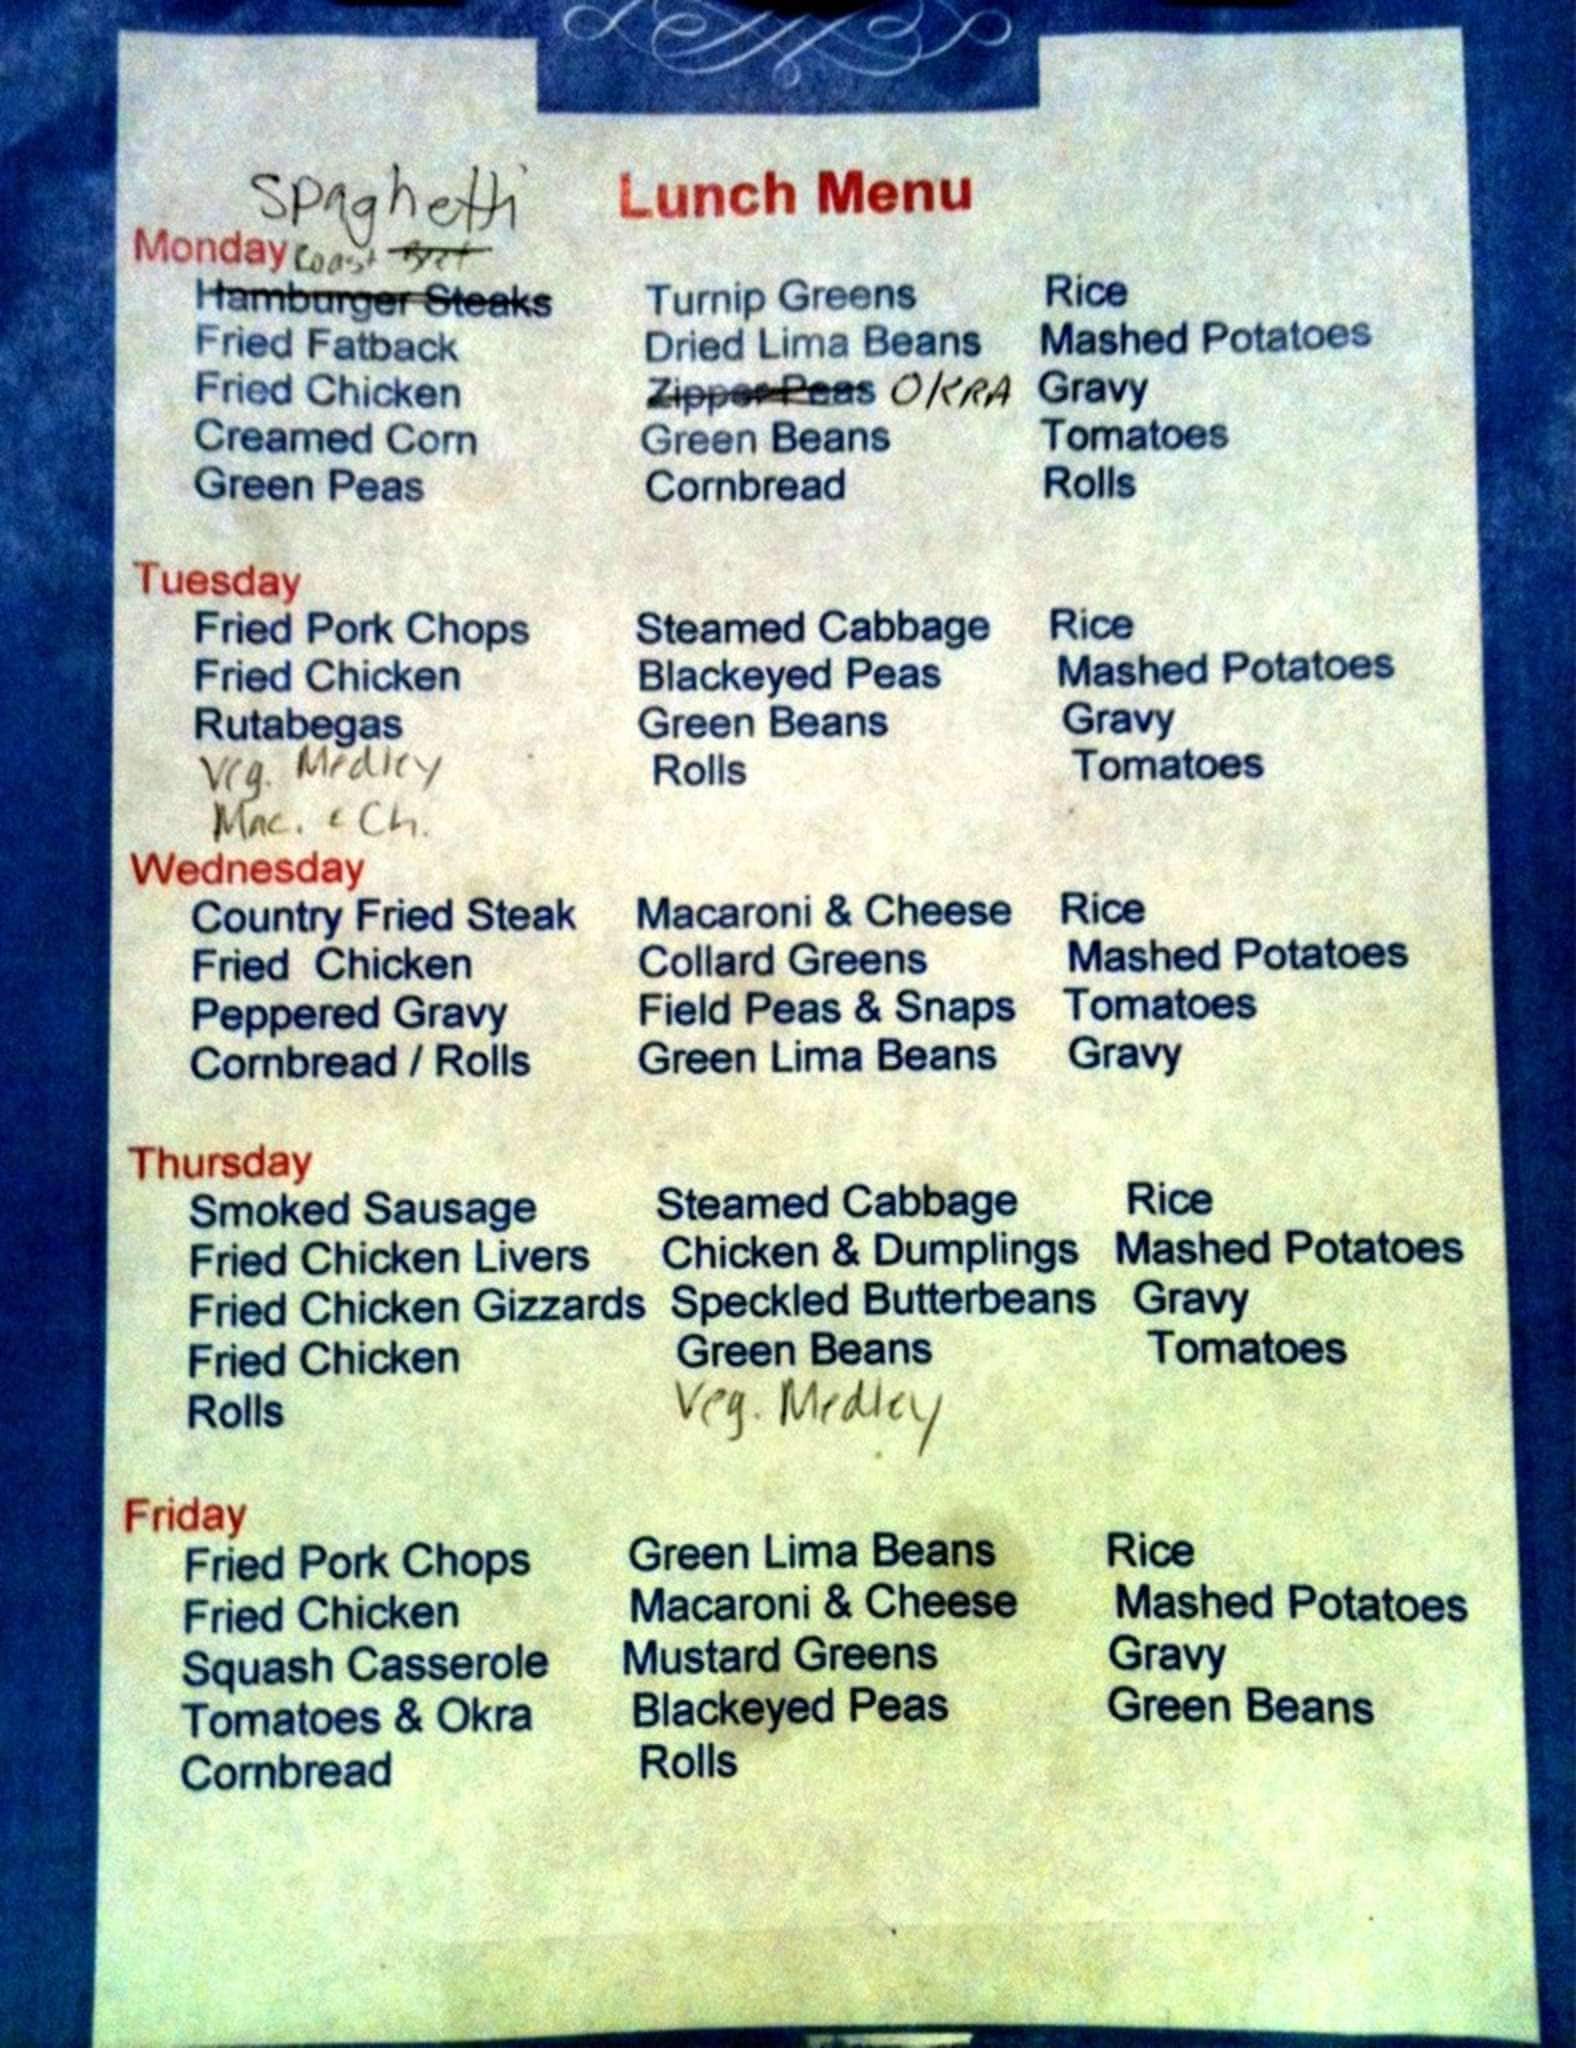 Spaghetti Lunch Menu
Monday Roast Beef
Hamburger Steaks Turnip Greens Rice
Fried Fatback Dried Lima Beans Mashed Potatoes
Fried Chicken Zipper Peas OKRA Gravy
Creamed Corn Green Beans Tomatoes
Green Peas Cornbread Rolls
Tuesday
Fried Pork Chops Steamed Cabbage Rice
Fried Chicken Blackeyed Peas Mashed Potatoes
Rutabegas Green Beans Gravy
Veg. Medley Rolls Tomatoes
Mac. & Ch.
Wednesday
Country Fried Steak Macaroni & Cheese Rice
Fried Chicken Collard Greens Mashed Potatoes
Peppered Gravy Field Peas & Snaps Tomatoes
Cornbread / Rolls Green Lima Beans Gravy
Thursday
Smoked Sausage Steamed Cabbage Rice
Fried Chicken Livers Chicken & Dumplings Mashed Potatoes
Fried Chicken Gizzards Speckled Butterbeans Gravy
Fried Chicken Green Beans Tomatoes
Rolls Veg. Medley
Friday
Fried Pork Chops Green Lima Beans Rice
Fried Chicken Macaroni & Cheese Mashed Potatoes
Squash Casserole Mustard Greens Gravy
Tomatoes & Okra Blackeyed Peas Green Beans
Cornbread Rolls